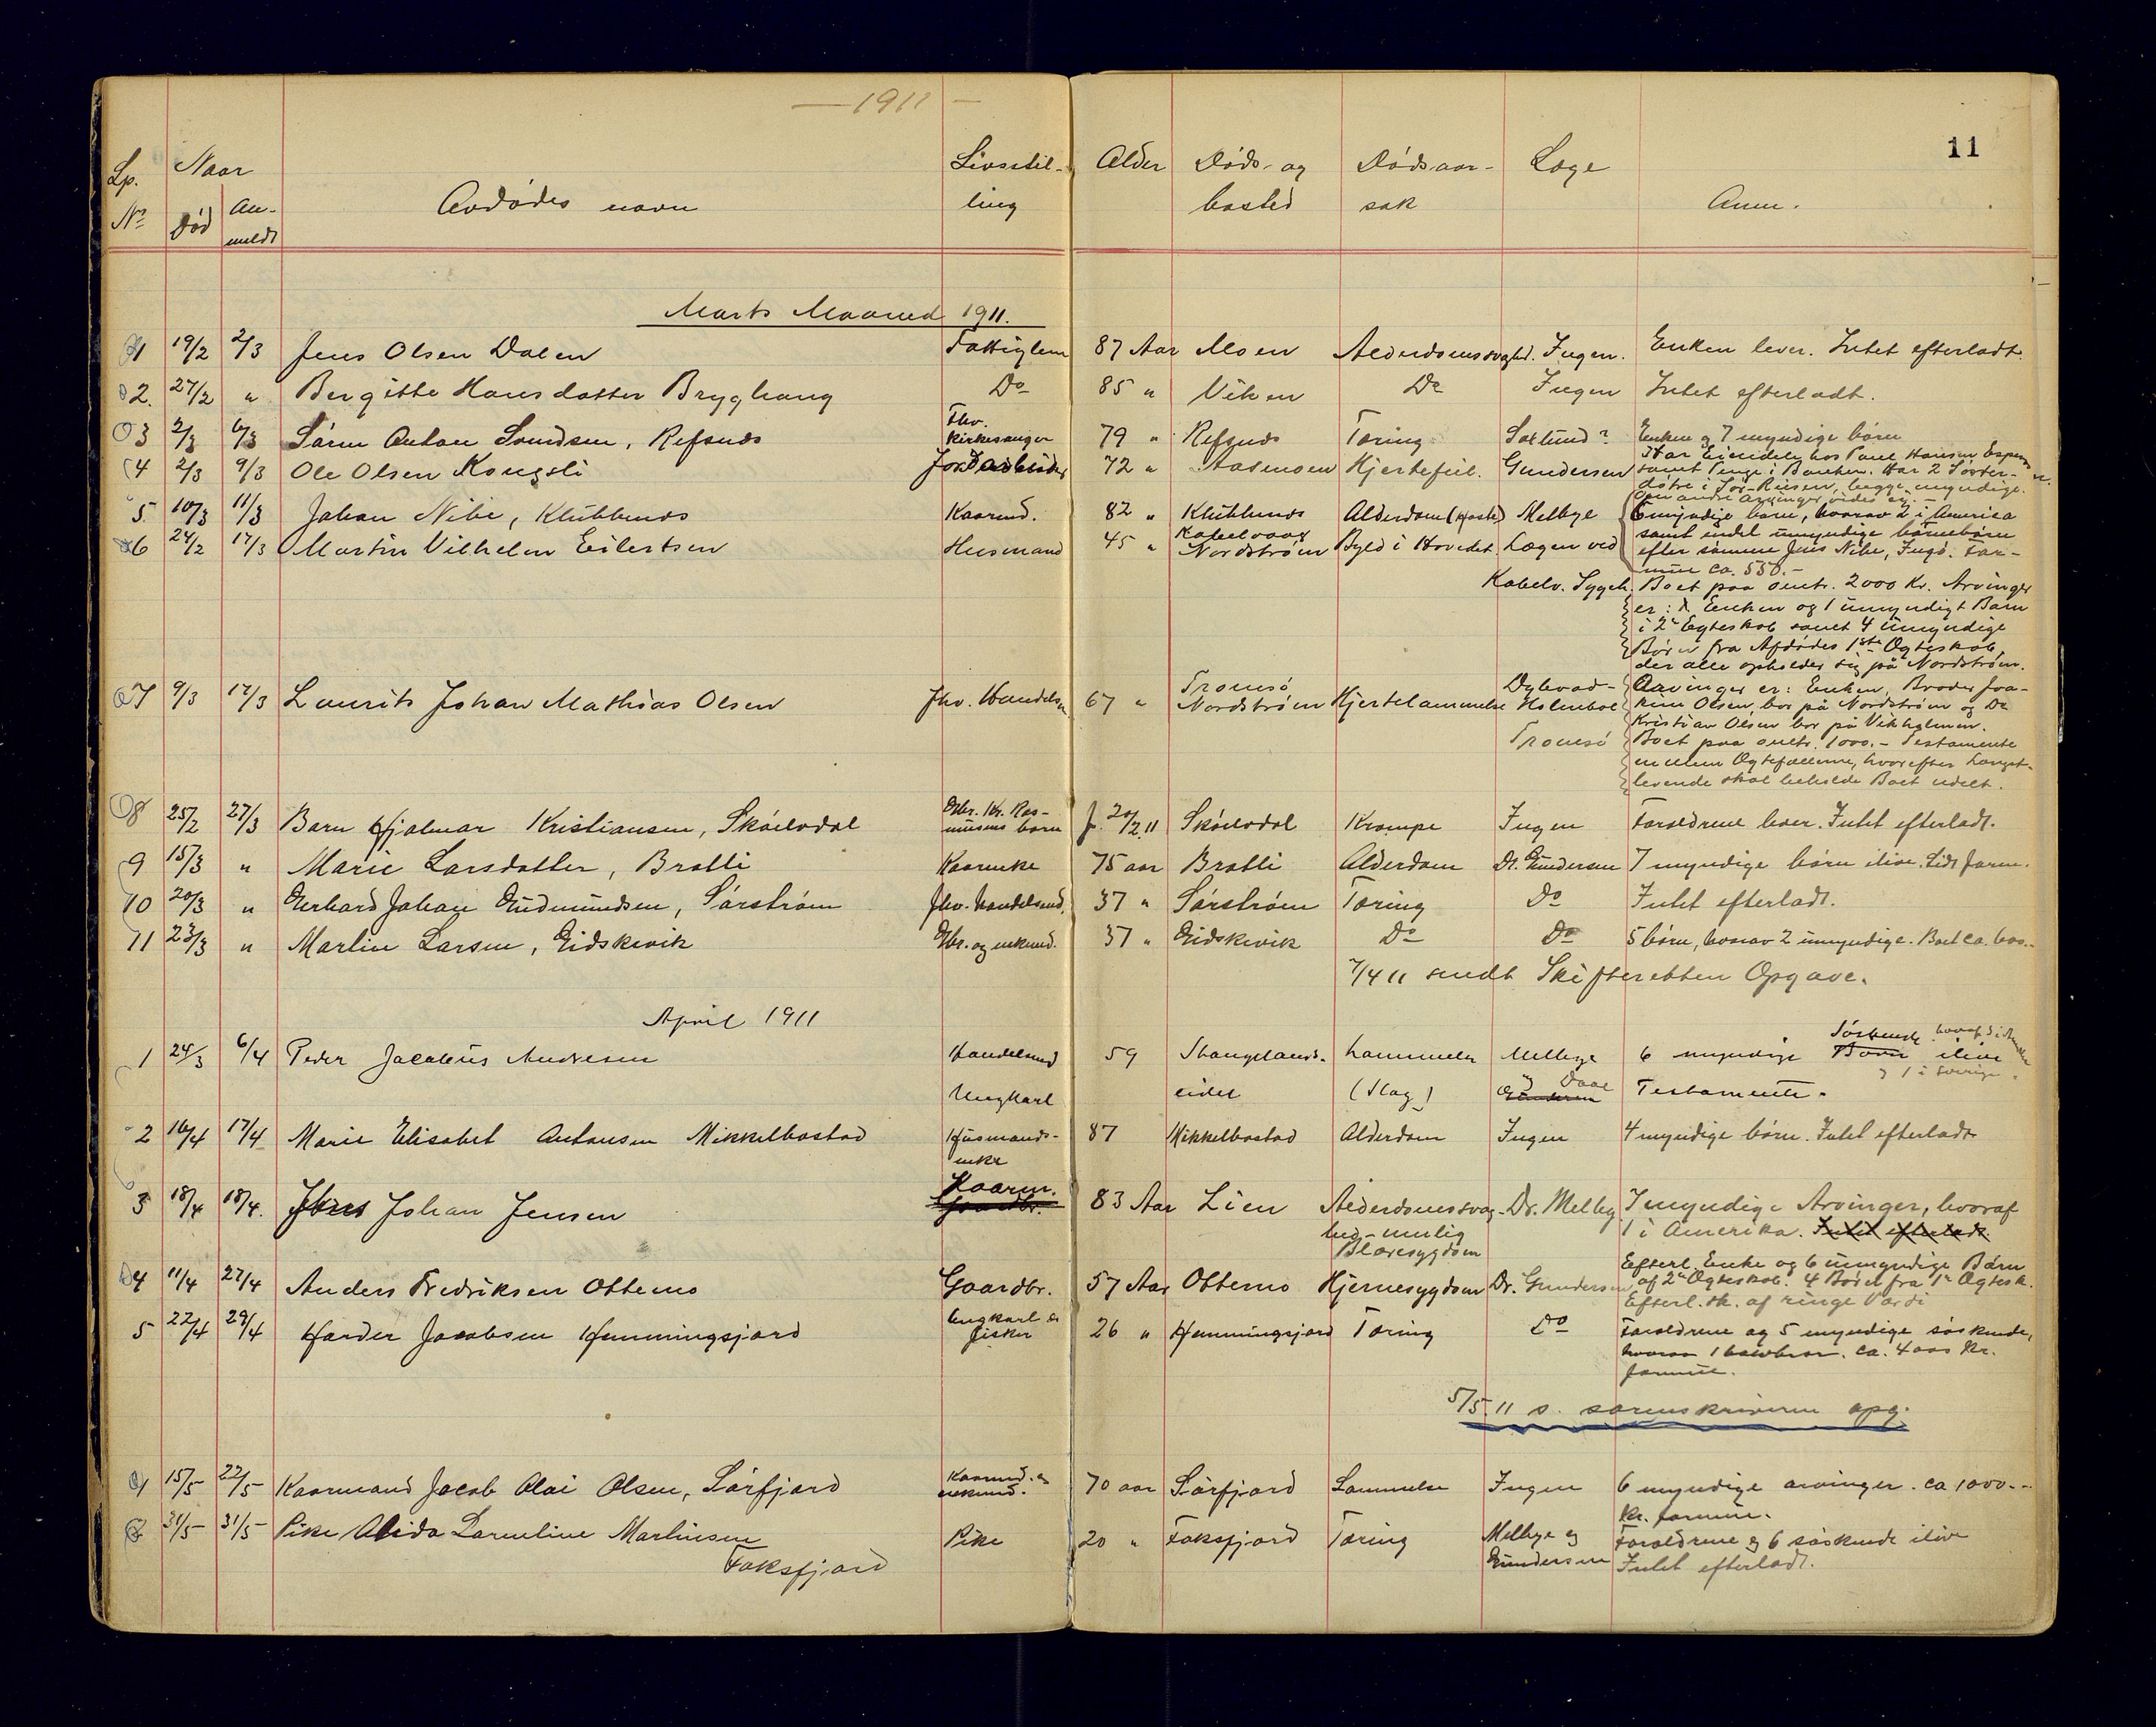 — 1911 —
11
Lp. Naar Livsstil- Alder Døds- og Dødsaar- Læge
No Død An- Avdødes navn ling bosted sak Anm.
meldt
Marts Maaned 1911.
1 19/2 2/3 Jens Olsen Dalen Fattiglem 87 Aar Moen Alderdomssvaghd. Ingen. Enken lever. Intet efterladt.
2. 27/2 " Bergitte Hansdatter Bryghaug Do 85 " Viken Do Ingen Intet efterladt.
3 2/3 6/3 Sørin Antan Svendsen, Refsnes Fhv. kirkesanger 79 " Refsnes Tæring Saxlund? Enken og 7 myndige børn
4 2/3 9/3 Ole Olsen Kongsli Jordarbider 72 " Hjertefeil. Gundersen Har Eiendele hos Paul Hansen Espenes
samt Penge i Banken. Har 2 Søster-
døtre i Sør-Reisen, begge myndige.
Om andre arvinger vides ei. -
5. 10/3 11/3 Johan Nibe, Klubbnes Kaarmd. 82 " Klubbnes Alderdom (Hoste) Melbye 6 myndige børn, hvorav 2 i America
samt endel umyndige børnebørn
efter sønnen Jens Nibe, Ingø. For-
mue ca. 550.-
6 24/2 17/3 Martin Vilhelm Eilertsen Husmand 45 " Kabelvaag Nordstrøm Byld i Hovedet Lægen ved
Kabelv. Sygeh. Boet paa omtr. 2000 Kr. Arvinger
er: Enken og 1 umyndigt Barn
i 2t Egteskab samt 4 umyndige
Børn fra Afdødes 1ste Ægteskab,
der alle opholder sig på Nordstrøm.
7 9/3 17/3 Laurits Johan Mathias Olsen Fhv. Handelsm. 67 " Tromsø Nordstrøm Hjertelammelse Dybvad- Holmboe Tromsø Arvinger er: Enken, Broder Joa-
kim Olsen, bor på Nordstrøm og Do
Kristian Olsen bor på Vikholmen.
Boet paa omtr. 1000.- Testamente
mellem Ægtefællerne, hvorefter Længst-
levende skal beholde Boet udelt.
8 25/2 27/3 Barn Hjalmar Kristiansen, Skøelvdal Gbr. Kr. Ras- musens barn f. 20/2 11 Skøelvdal Krampe Ingen Forældrene lever. Intet efterladt.
9 15/3 " Marie Larsdatter, Bratli Kaarenke 75 aar Bratli Alderdom Dr. Gundersen 7 myndige børn ilive. Lidt form.
10 20/3 " Gerhard Johan Gudmundsen, Sørstrøm fhv. handelsmd. 37 " Sørstrøm Tæring Do Intet efterladt.
11 23/3 " Martin Larsen, Gidskevik Gbr. og enkemd. 37 " Gidskevik Do Do 5 børn, hvorav 2 umyndige. Boet ca. 600.-
7/4 11 sendt Skifteretten Opgave.
April 1911
1 24/3 6/4 Peder Jacobeus Andresen Handelsmd 59 Stangelands- Lammelse Melbye 6 myndige Børn Søskende ilive
Ungkarl eidet (Slag) og Daae Gundersen Testamente. og 1 i Sverige.
2 16/4 17/4 Marie Elisabet Antonsen Mikkelbostad Husmands- enke 87 Mikkelbostad Alderdom Ingen 4 myndige børn. Intet efterladt
3 18/4 18/4. Johan Jensen Kaarm. Gaardbr. 83 Aar Lien Alderdomssvag- Dr. Melby 7 myndige Arvinger, hvoraf
hed - mulig Blæresygdom 1 i Amerika. Intet efterladt.
4 11/4 27/4 Anders Fredriksen Ottemo Gaardbr. 57 Aar Ottemo Hjernesygdom Dr. Gundersen Efterl. Enke og 6 umyndige Børn
af 2t Ægteskab. 4 Børn fra 1t Ægtesk.
Efterl. sk. af ringe Værdi
5 22/4 29/4 Harder Jacobsen Hemmingsjord Ungkarl og fisker 26 " Hemmingsjord Tæring Do Forældrene og 5 myndige søskende,
hvorav 1 halvbror. ca. 400 kr.
formue.
5/5 11 s. sorenskriveren opg.
1 15/5 22/5 Kaarmand Jacob Olai Olsen, Sørfjord Kaarmd. og enkemd. 70 aar Sørfjord Lammelse Ingen 6 myndige arvinger. ca 1000.-
kr. formue.
2 31/5 31/5 Pike Alida Dorneline Martinsen Pike 20 " Faksfjord Tæring Melbye og Gundersen Forældrene og 6 søskende ilive
Faksfjord Intet efterladt.